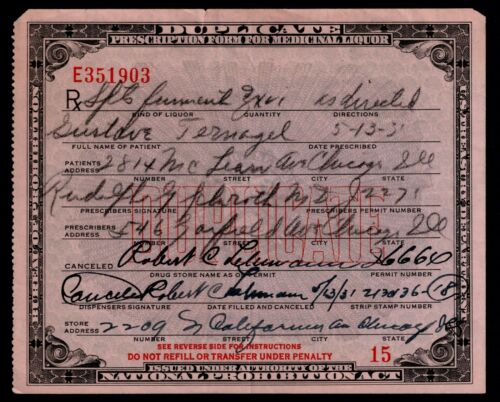 DUPLICATE
PRESCRIPTION FORM FOR MEDICINAL LIQUOR
E351903
Rx Spts frumenti as directed
KIND OF LIQUOR QUANTITY DIRECTIONS
Gustave 5-13-31
FULL NAME OF PATIENT DATE PRESCRIBED
PATIENTS ADDRESS 2814 McLean Ave Chicago Ill
NUMBER STREET CITY STATE
Rudolph M D
PRESCRIBERS SIGNATURE PRESCRIBERS PERMIT NUMBER
DUPLICATE
PRESCRIBERS ADDRESS 546 Garfield Ave Chicago Ill
NUMBER STREET CITY STATE
CANCELED Robert C Lehmann
DRUG STORE NAME AS ON PERMIT PERMIT NUMBER
Canceled Robert C Lehmann 5/13/31
DISPENSERS SIGNATURE DATE FILLED AND CANCELED STRIP STAMP NUMBER
STORE ADDRESS 2209 N California Av Chicago Ill
NUMBER STREET CITY STATE
SEE REVERSE SIDE FOR INSTRUCTIONS
DO NOT REFILL OR TRANSFER UNDER PENALTY
15
ISSUED UNDER AUTHORITY OF THE
NATIONAL PROHIBITION ACT